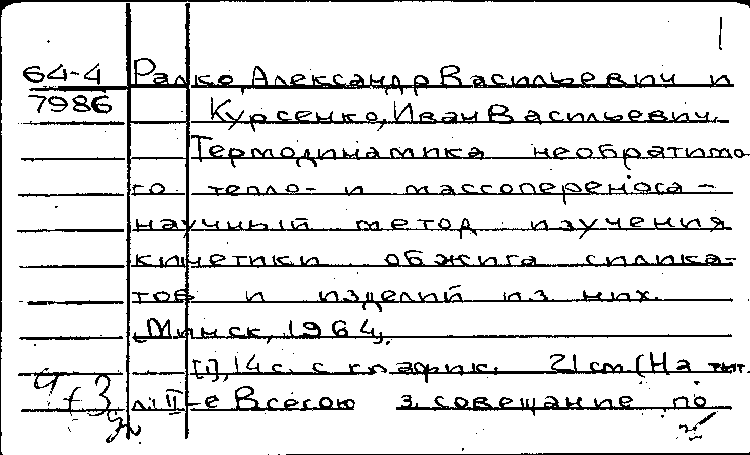 1
64-4 Ралко, Александр Васильевич и
7986 Курсенко, Иван Васильевич.
Термодинамика необратимо
го тепло- и массопереноса -
научный метод изучения
кинетики обжига силика-
тов и изделий из них.
[Минск, 1964],
[1], 14 с. с график. 21 см. (На тит.
л.: II-е Всесоюз. совещание по